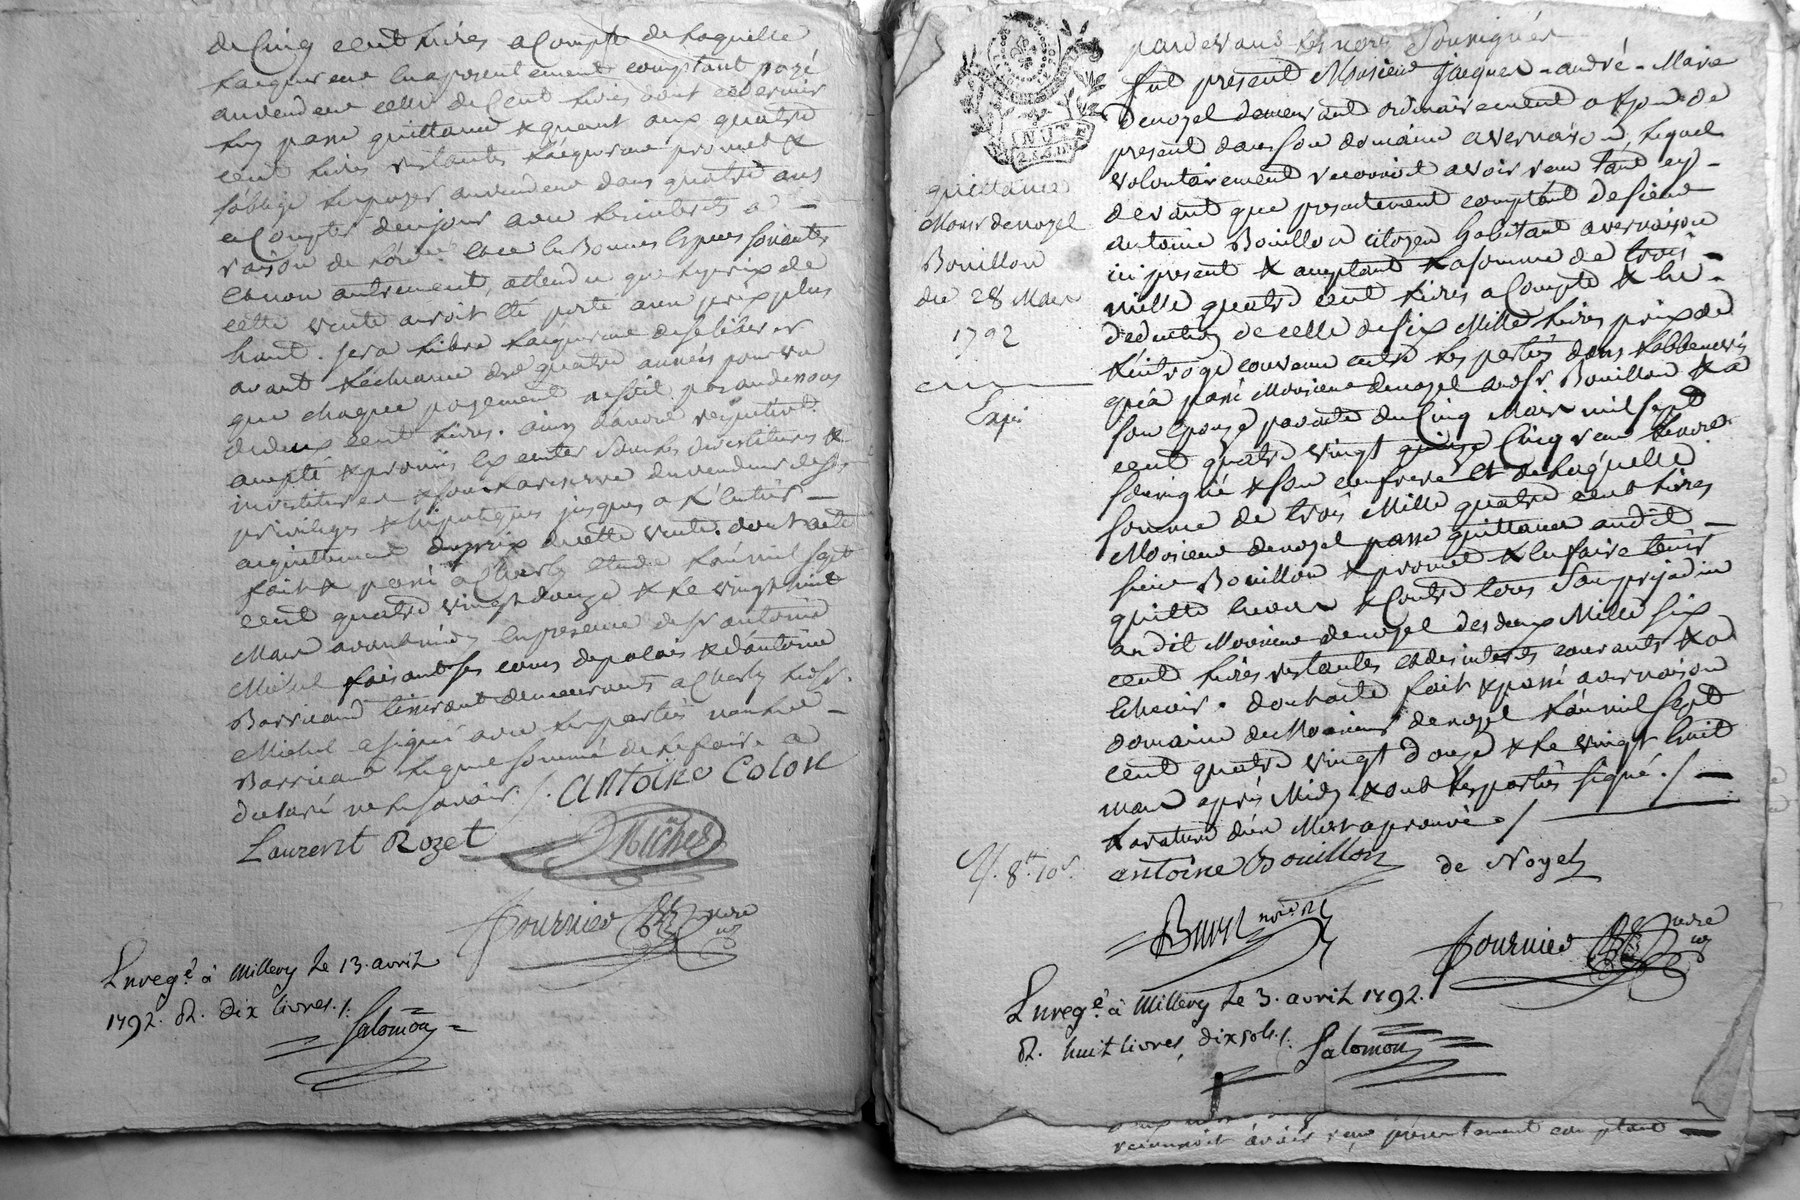 de Cinq cent livres a Compte de laquelle
l'acquereur a presentement comptant payé
au vendeur celle de Cent livres dont ce dernier
luy passe quittance & quant aux quatre
cent livres restantes l'acquereur promet &
s'oblige les payer au vendeur dans quatre ans
a Compter de ce jour avec les interets a
raison de
et non autrement, attendu que le prix de
cette vente auroit été porté a un prix plus
haut. sera libre l'acquereur de se liberer
avant l'echeance des quatre années pourvu
que chaque payement ne soit pas au dessous
de deux cent livres. ainsi
accepté & promis
sous la reserve du vendeur de ses
privileges & hipoteques jusques a l'entier
acquittement du prix de cette vente. dont acte
fait & passé a Charly etude l'an mil sept
cent quatre vingt douze & le vingt huit
Mars avant midy en presence de sr antoine
Michel faisant ses cours de palais & d'antoine
Barricand tisserant demeurants a Charly led. sr.
Michel a signé avec les parties non led.
Barricand lequel sommé de le faire a
declaré ne le savoir ./. antoine Colon
Laurent Rozet Michel
Fournier nore
Enregé à Millery le 13. avril
1792. R. dix livres ./.
Salomon
pardevant les nores Soussignés
fut present Monsieur Jacques-andré-Marie
Denoyel demeurant ordinairement a Lyon de
present dans son domaine a vernaison, lequel
volontairement reconnoit avoir reçu tant cy-
devant que presentement comptant de sieur
antoine Bouillon citoyen habitant a vernaison
ici present & acceptant la somme de trois
mille quatre cent livres a Compte & en
deduction de celle de six Mille livres prix de
convenu entre les parties dans
qu'a passé Monsieur denoyel aud. sr. Bouillon & a
son epouze par acte du Cinq Mars mil sept
cent quatre vingt onze reçu
soussigné & son confrere et de laquelle
somme de trois Mille quatre cent livres
Monsieur denoyel passe quittance audit
sieur Bouillon & promet l'en faire tenir
quitte envers & Contre tous Sans prejudice
audit Monsieur denoyel des deux Mille six
cent livres restantes et des interets courants & a
echeoir. dont acte fait & passé a vernaison
domaine de Monsieur denoyel l'an mil sept
cent quatre vingt douze & le vingt huit
mars après Midy & ont les parties signé ./.
la rature d'un Mot aprouvée ./
antoine Bouillon de Noyel
nore
Fournier nore
quittance
Monsr denoyel
Bouillon
du 28 Mars
1792
Expé
Enregé à Millery le 3. avril 1792.
R. huit livres, dix sols ./. Salomon
reconnoit avoir reçu présentement comptant